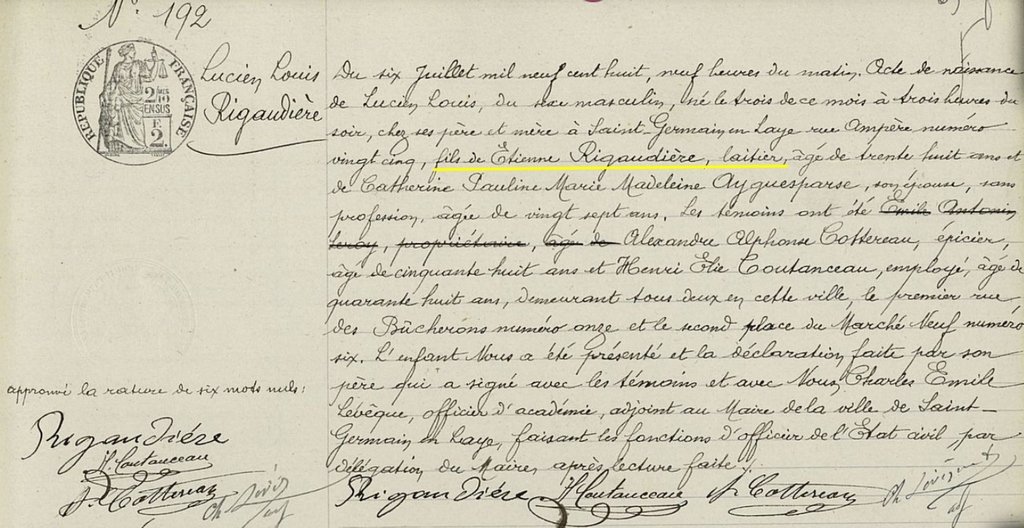 N° 192
RÉPUBLIQUE FRANÇAISE
2/10
EN SUS
F
2
Lucien Louis
Rigaudière
Du six Juillet mil neuf cent huit, neuf heures du matin. Acte de naissance
de Lucien Louis, du sexe masculin, né le trois de ce mois à trois heures du
soir, chez ses père et mère à Saint-Germain en Laye rue Ampère numéro
vingt cinq, fils de Etienne Rigaudière, laitier, âgé de trente huit ans et
de Catherine Pauline Marie Madeleine Ayguesparse, son épouse, sans
profession, âgée de vingt sept ans. Les témoins ont été Emile Antonin
Leroy, propriétaire, âgé de Alexandre Alphonse Cottereau, épicier,
âgé de cinquante huit ans et Henri Elie Coutanceau, employé, âgé de
quarante huit ans, demeurant tous deux en cette ville, le premier rue
des Bûcherons numéro onze et le second place du Marché Neuf numéro
six. L'enfant Nous a été présenté et la déclaration faite par son
père qui a signé avec les témoins et avec Nous, Charles Emile
Lévêque, officier d'académie, adjoint au Maire de la ville de Saint-
Germain en Laye, faisant les fonctions d'officier de l'Etat civil par
délégation du Maire, après lecture faite.
approuvé la rature de six mots nuls :
Rigaudière
H. Coutanceau
A. Cottereau
Ch Lévêque
adj
Rigaudière H. Coutanceau A. Cottereau Ch Lévêque
adj